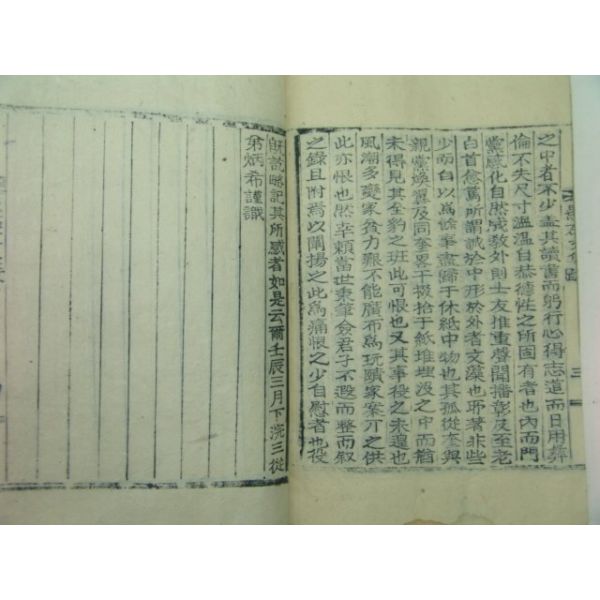 之中者不少盖其讀書而躬行心得志道而日用彛
倫不失尺寸溫溫自恭德性之所固有者也內而門
黨感化自然成敎外則士友推重聲聞播彰及至老
白首愈篤所謂誠於中形於外者文藻也耶著非些
少而自以爲餘事盡歸于休紙中物也其孤從奎與
親黨煥翼及同奎畧干掇拾于紙堆埋沒之中而猶
未得見其全豹之班此可恨也又其事役之未遑也
風潮多變家貧力艱不能廣布爲玩賾家案亓之供
此亦恨也然幸賴當世秉筆僉君子不遐而整而叙
之錄且附焉以闡揚之此爲痛恨之少自慰者也役
旣訖略記其所感者如是云爾壬辰三月下浣三從
弟炳希謹識